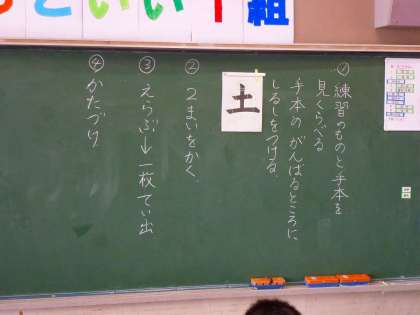 といい
1
組
① 練習のものと手本を
見くらべる
手本のがんばるところに
しるしをつける。
土
② 2まいをかく。
③ えらぶ→一枚てい出
④ かたづけ